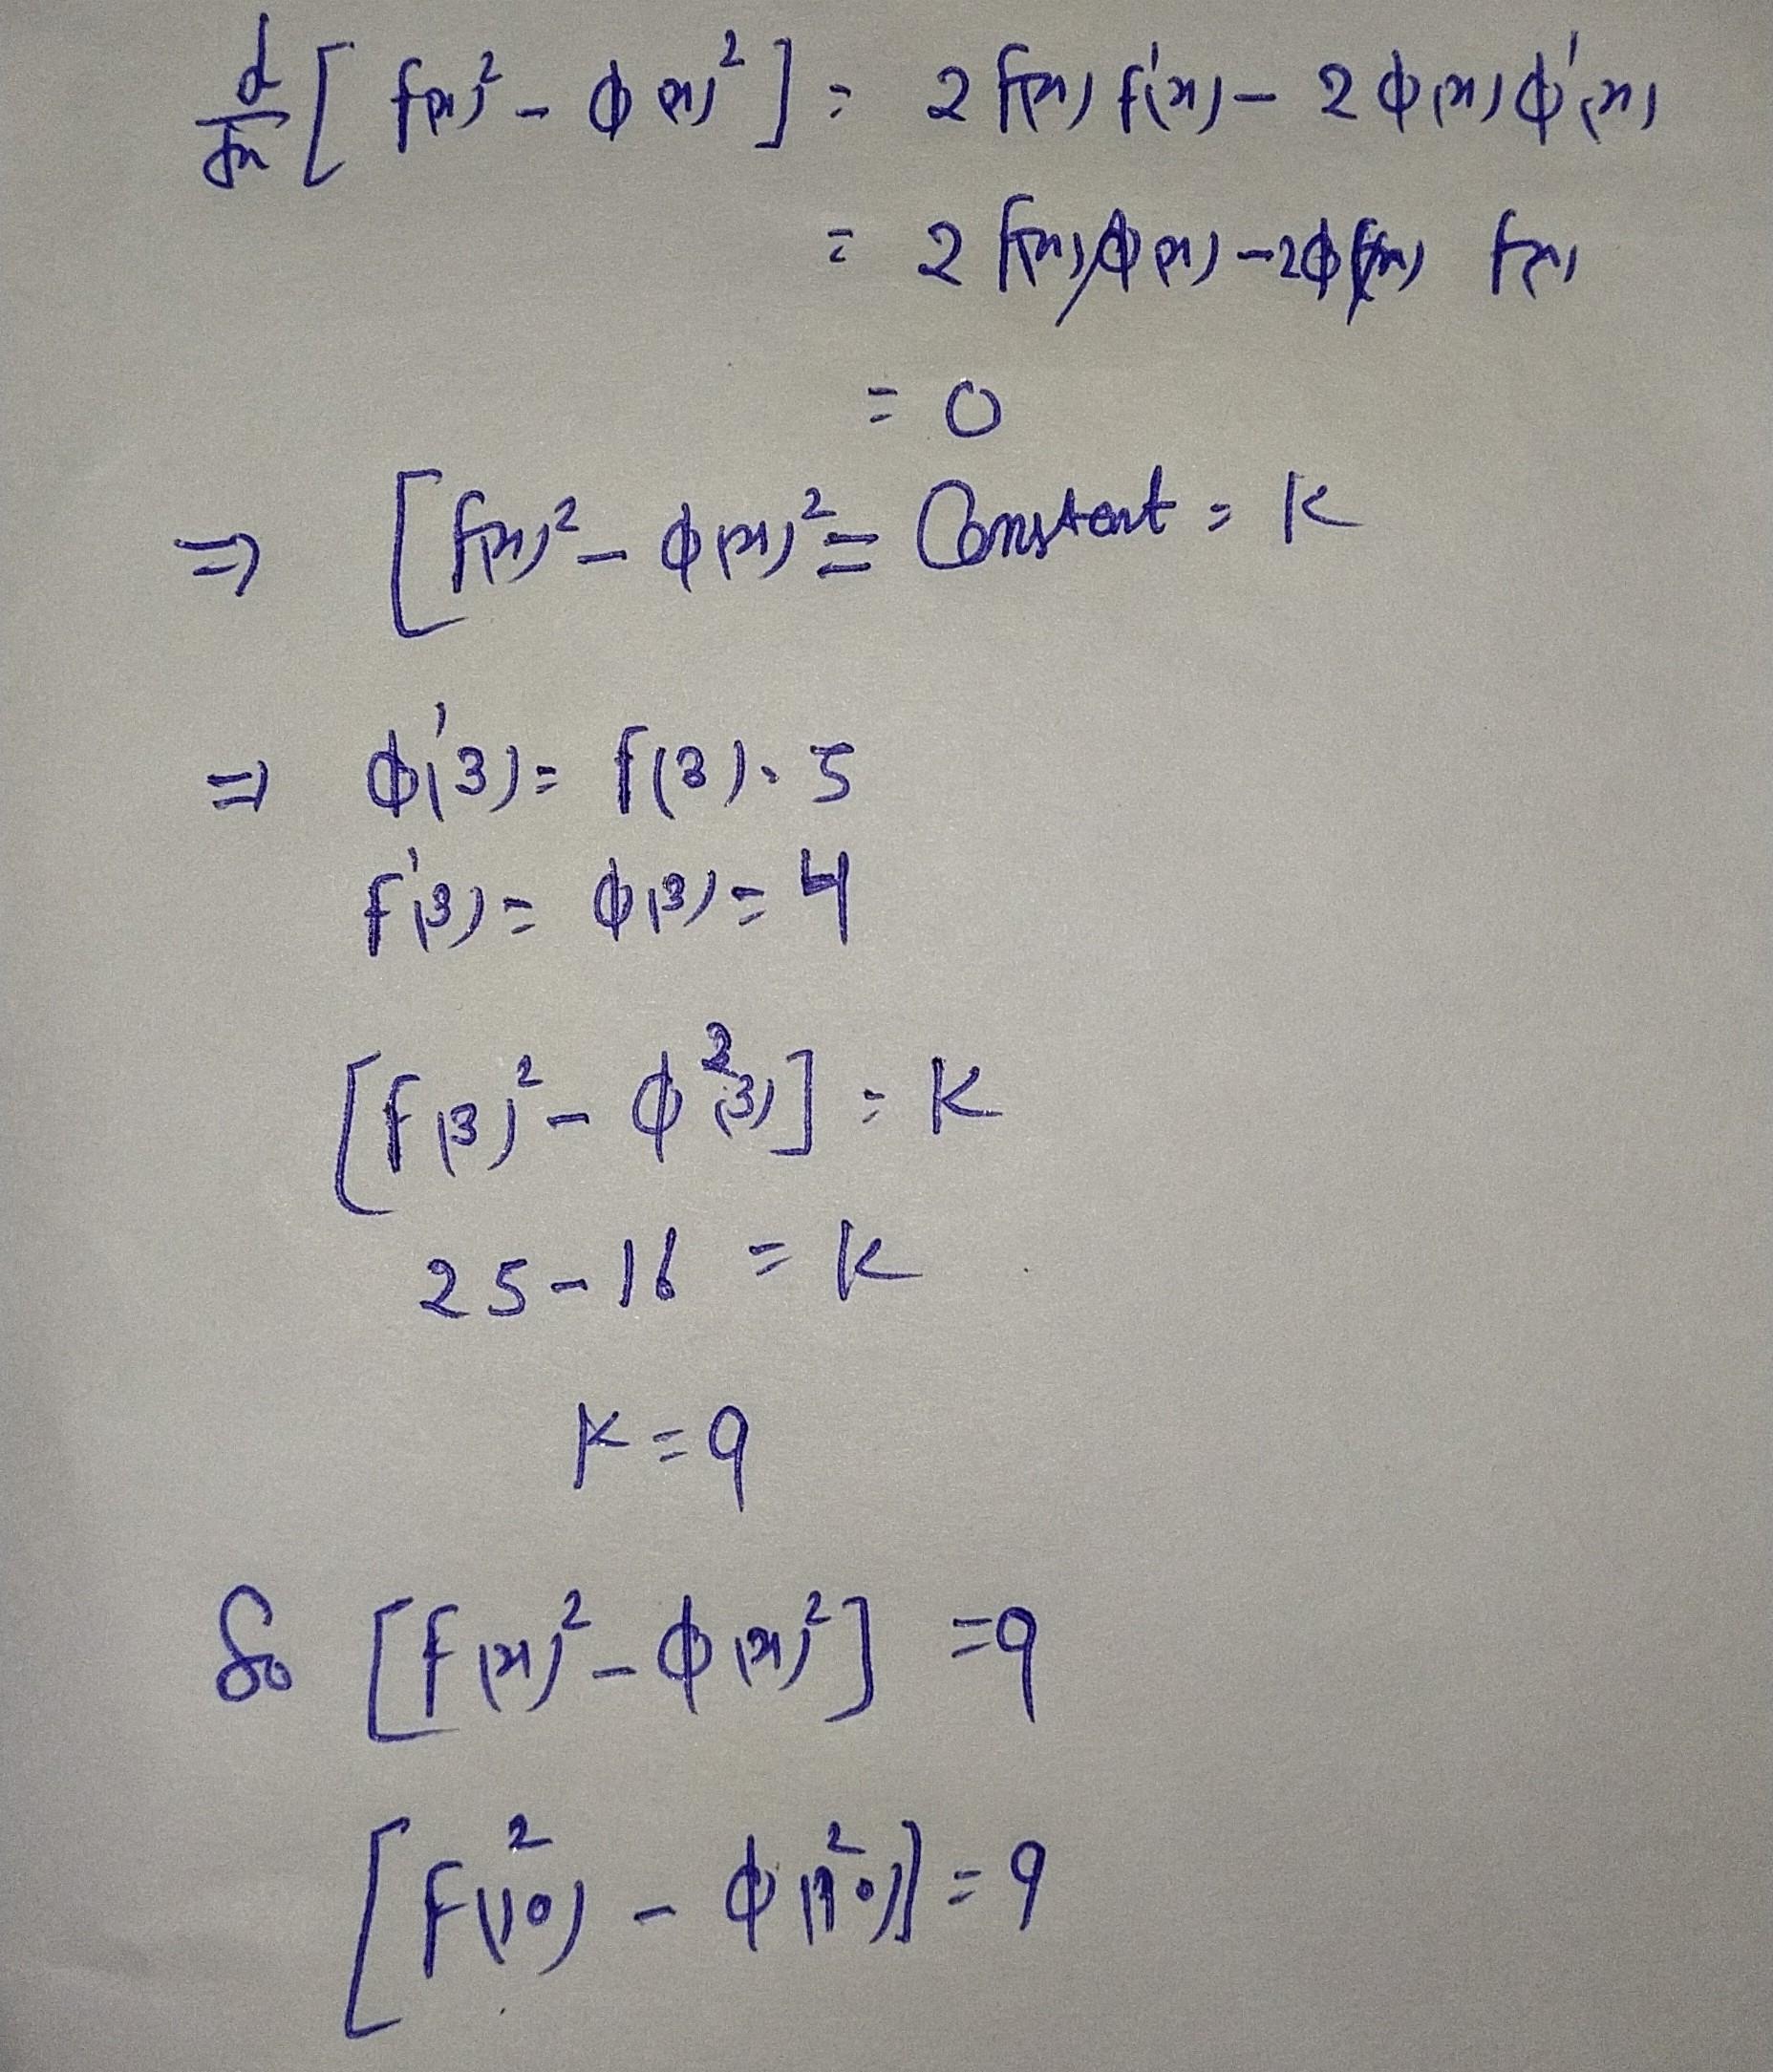 d/dx [ f(x)² - ϕ(x)² ] = 2 f(x) f'(x) - 2 ϕ(x) ϕ'(x)
= 2 f(x) ϕ(x) - 2ϕ(x) f(x)
= 0
⇒ [ f(x)² - ϕ(x)² = Constant = K
⇒ ϕ'(3) = f(3) = 5
f'(3) = ϕ(3) = 4
[f(3)² - ϕ²(3)] = K
25 - 16 = K
K = 9
So [f(x)² - ϕ(x)²] = 9
[f²(10) - ϕ²(10)] = 9